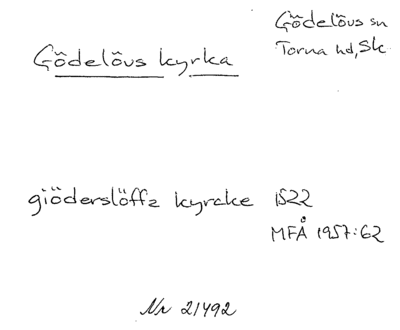 Gödelövs kyrka
Gödelövs sn
Torna hd, Sk
giöderslöffz kyrcke 1522
MFÅ 1957:62
Nr 21492